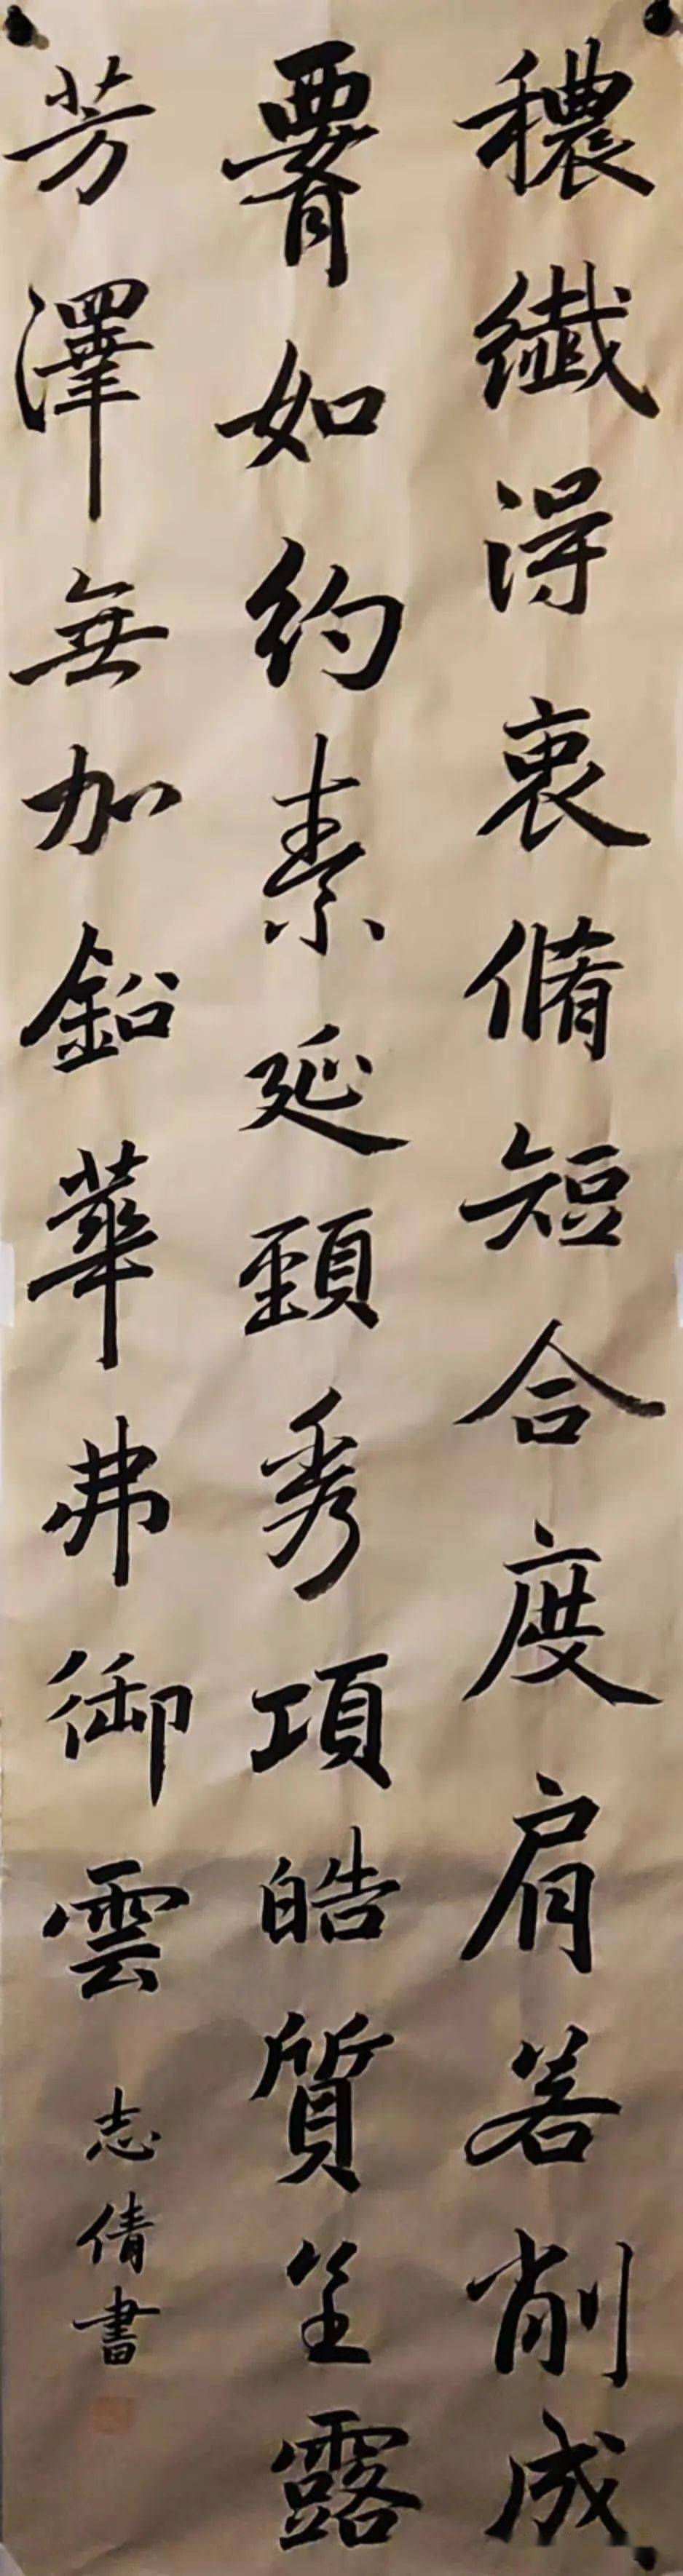 穠纖得衷脩短合度肩若削成
腰如約素延頸秀項皓質呈露
芳澤無加鉛華弗御雲
志倩書